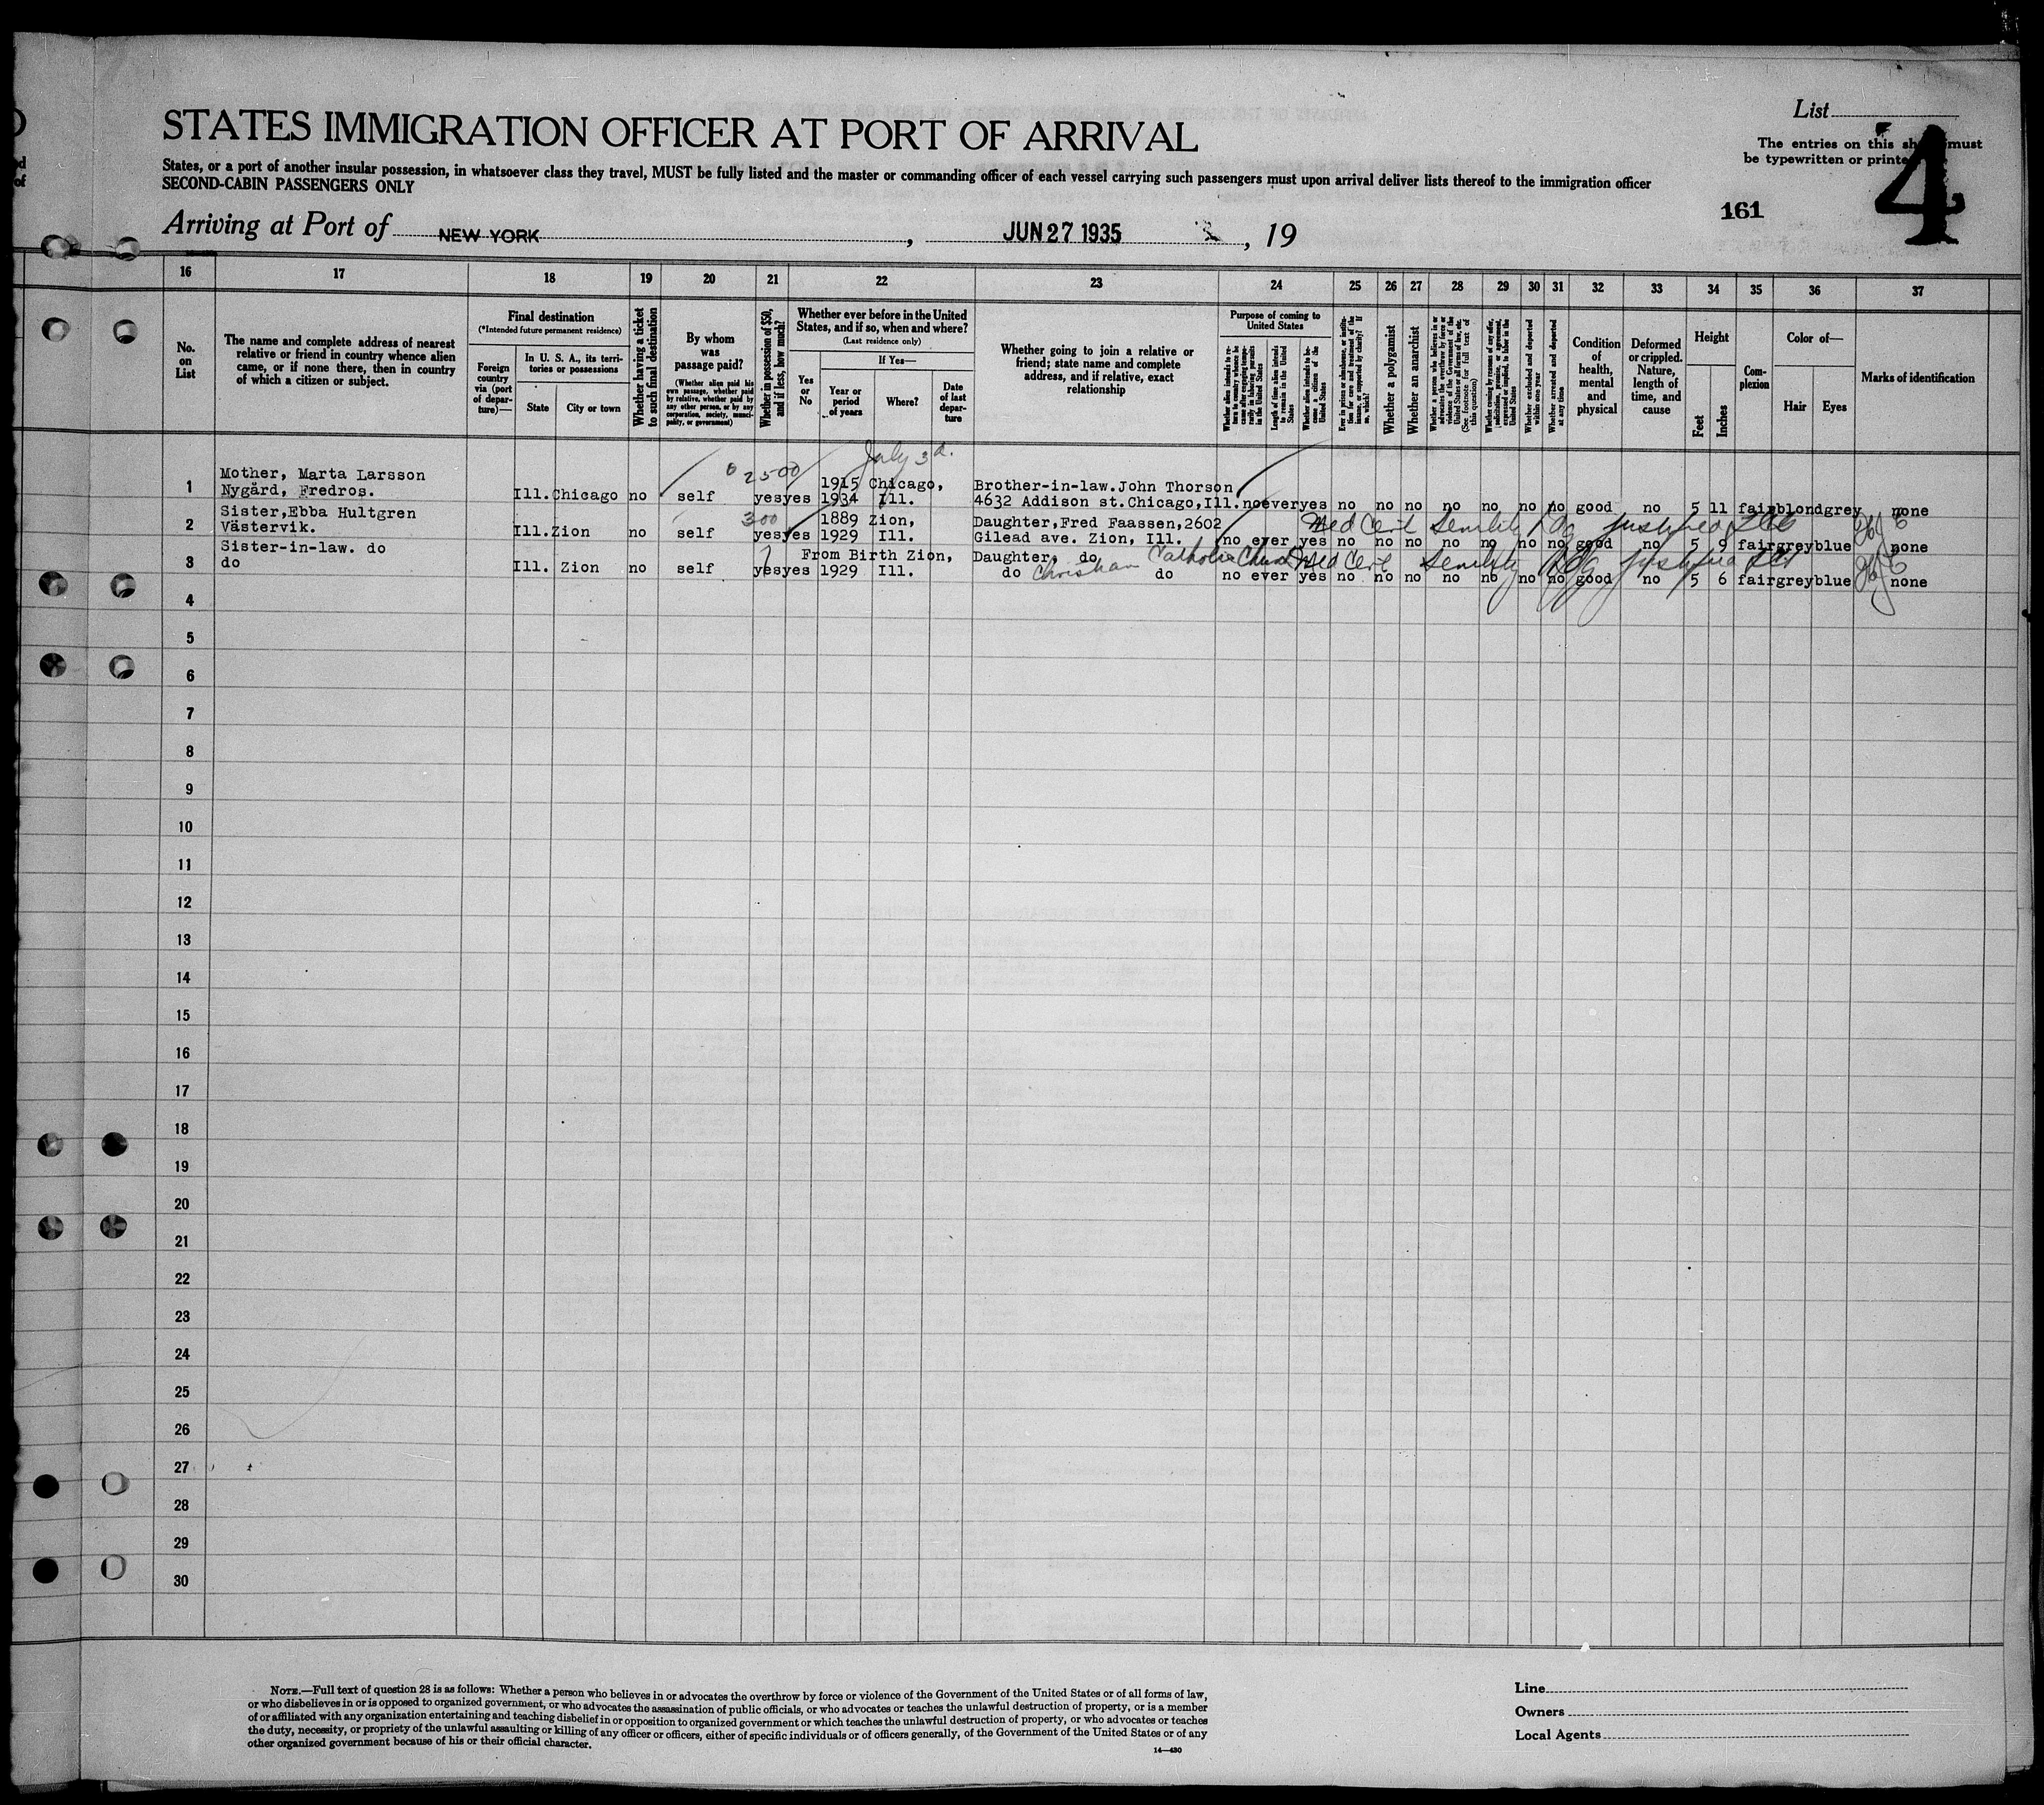 STATES IMMIGRATION OFFICER AT PORT OF ARRIVAL
List
The entries on this sheet must
be typewritten or printed
4
161
States, or a port of another insular possession, in whatsoever class they travel, MUST be fully listed and the master or commanding officer of each vessel carrying such passengers must upon arrival deliver lists thereof to the immigration officer
SECOND-CABIN PASSENGERS ONLY
Arriving at Port of NEW YORK, JUN 27 1935, 19
16 17 18 19 20 21 22 23 24 25 26 27 28 29 30 31 32 33 34 35 36 37
No. on List
The name and complete address of nearest
relative or friend in country whence alien
came, or if none there, then in country
of which a citizen or subject.
Final destination
(*Intended future permanent residence)
Foreign country via (port of departure)—
In U. S. A., its territories or possessions
State
City or town
Whether having a ticket to such final destination
By whom was passage paid?
(Whether alien paid his own passage, whether paid by relative, whether paid by any other person, or by any corporation, society, municipality, or government)
Whether in possession of $50, and if less, how much?
Whether ever before in the United
States, and if so, when and where?
(Last residence only)
Yes or No
If Yes—
Year or period of years
Where?
Date of last departure
Whether going to join a relative or
friend; state name and complete
address, and if relative, exact
relationship
Purpose of coming to United States
Length of time alien intends to remain in the United States
Whether alien intends to become a citizen of the United States
Whether a polygamist
Whether an anarchist
(See footnote for full text of this question)
Whether excluded and deported within one year
Whether arrested and deported at any time
Condition of health, mental and physical
Deformed or crippled. Nature, length of time, and cause
Height
Feet
Inches
Complexion
Color of—
Hair
Eyes
Marks of identification
July 3d.
2500
1 Mother, Marta Larsson
Nygård, Fredros. Ill. Chicago no self yes yes 1915 Chicago,
1934 Ill. Brother-in-law. John Thorson
4632 Addison st. Chicago, Ill. no ever yes no no no no no no no good no 5 11 fair blond grey none
300
2 Sister, Ebba Hultgren
Västervik. Ill. Zion no self yes yes 1889 Zion,
1929 Ill. Daughter, Fred Faassen, 2602
Gilead ave. Zion, Ill. no ever yes no no no no no no no good no 5 9 fair grey blue none
Med Cert Senility justified
3 Sister-in-law. do
do Ill. Zion no self yes yes From Birth Zion,
1929 Ill. Daughter, do
do do no ever yes no no no no no no no good no 5 6 fair grey blue none
Christian Catholic Church Med Cert Senility justified
4
5
6
7
8
9
10
11
12
13
14
15
16
17
18
19
20
21
22
23
24
25
26
27
28
29
30
NOTE.—Full text of question 28 is as follows: Whether a person who believes in or advocates the overthrow by force or violence of the Government of the United States or of all forms of law,
or who disbelieves in or is opposed to organized government, or who advocates the assassination of public officials, or who advocates or teaches the unlawful destruction of property, or is a member
of or affiliated with any organization entertaining and teaching disbelief in or opposition to organized government or which teaches the unlawful destruction of property, or who advocates or teaches
the duty, necessity, or propriety of the unlawful assaulting or killing of any officer or officers, either of specific individuals or of officers generally, of the Government of the United States or of any
other organized government because of his or their official character.
14—430
Line
Owners
Local Agents